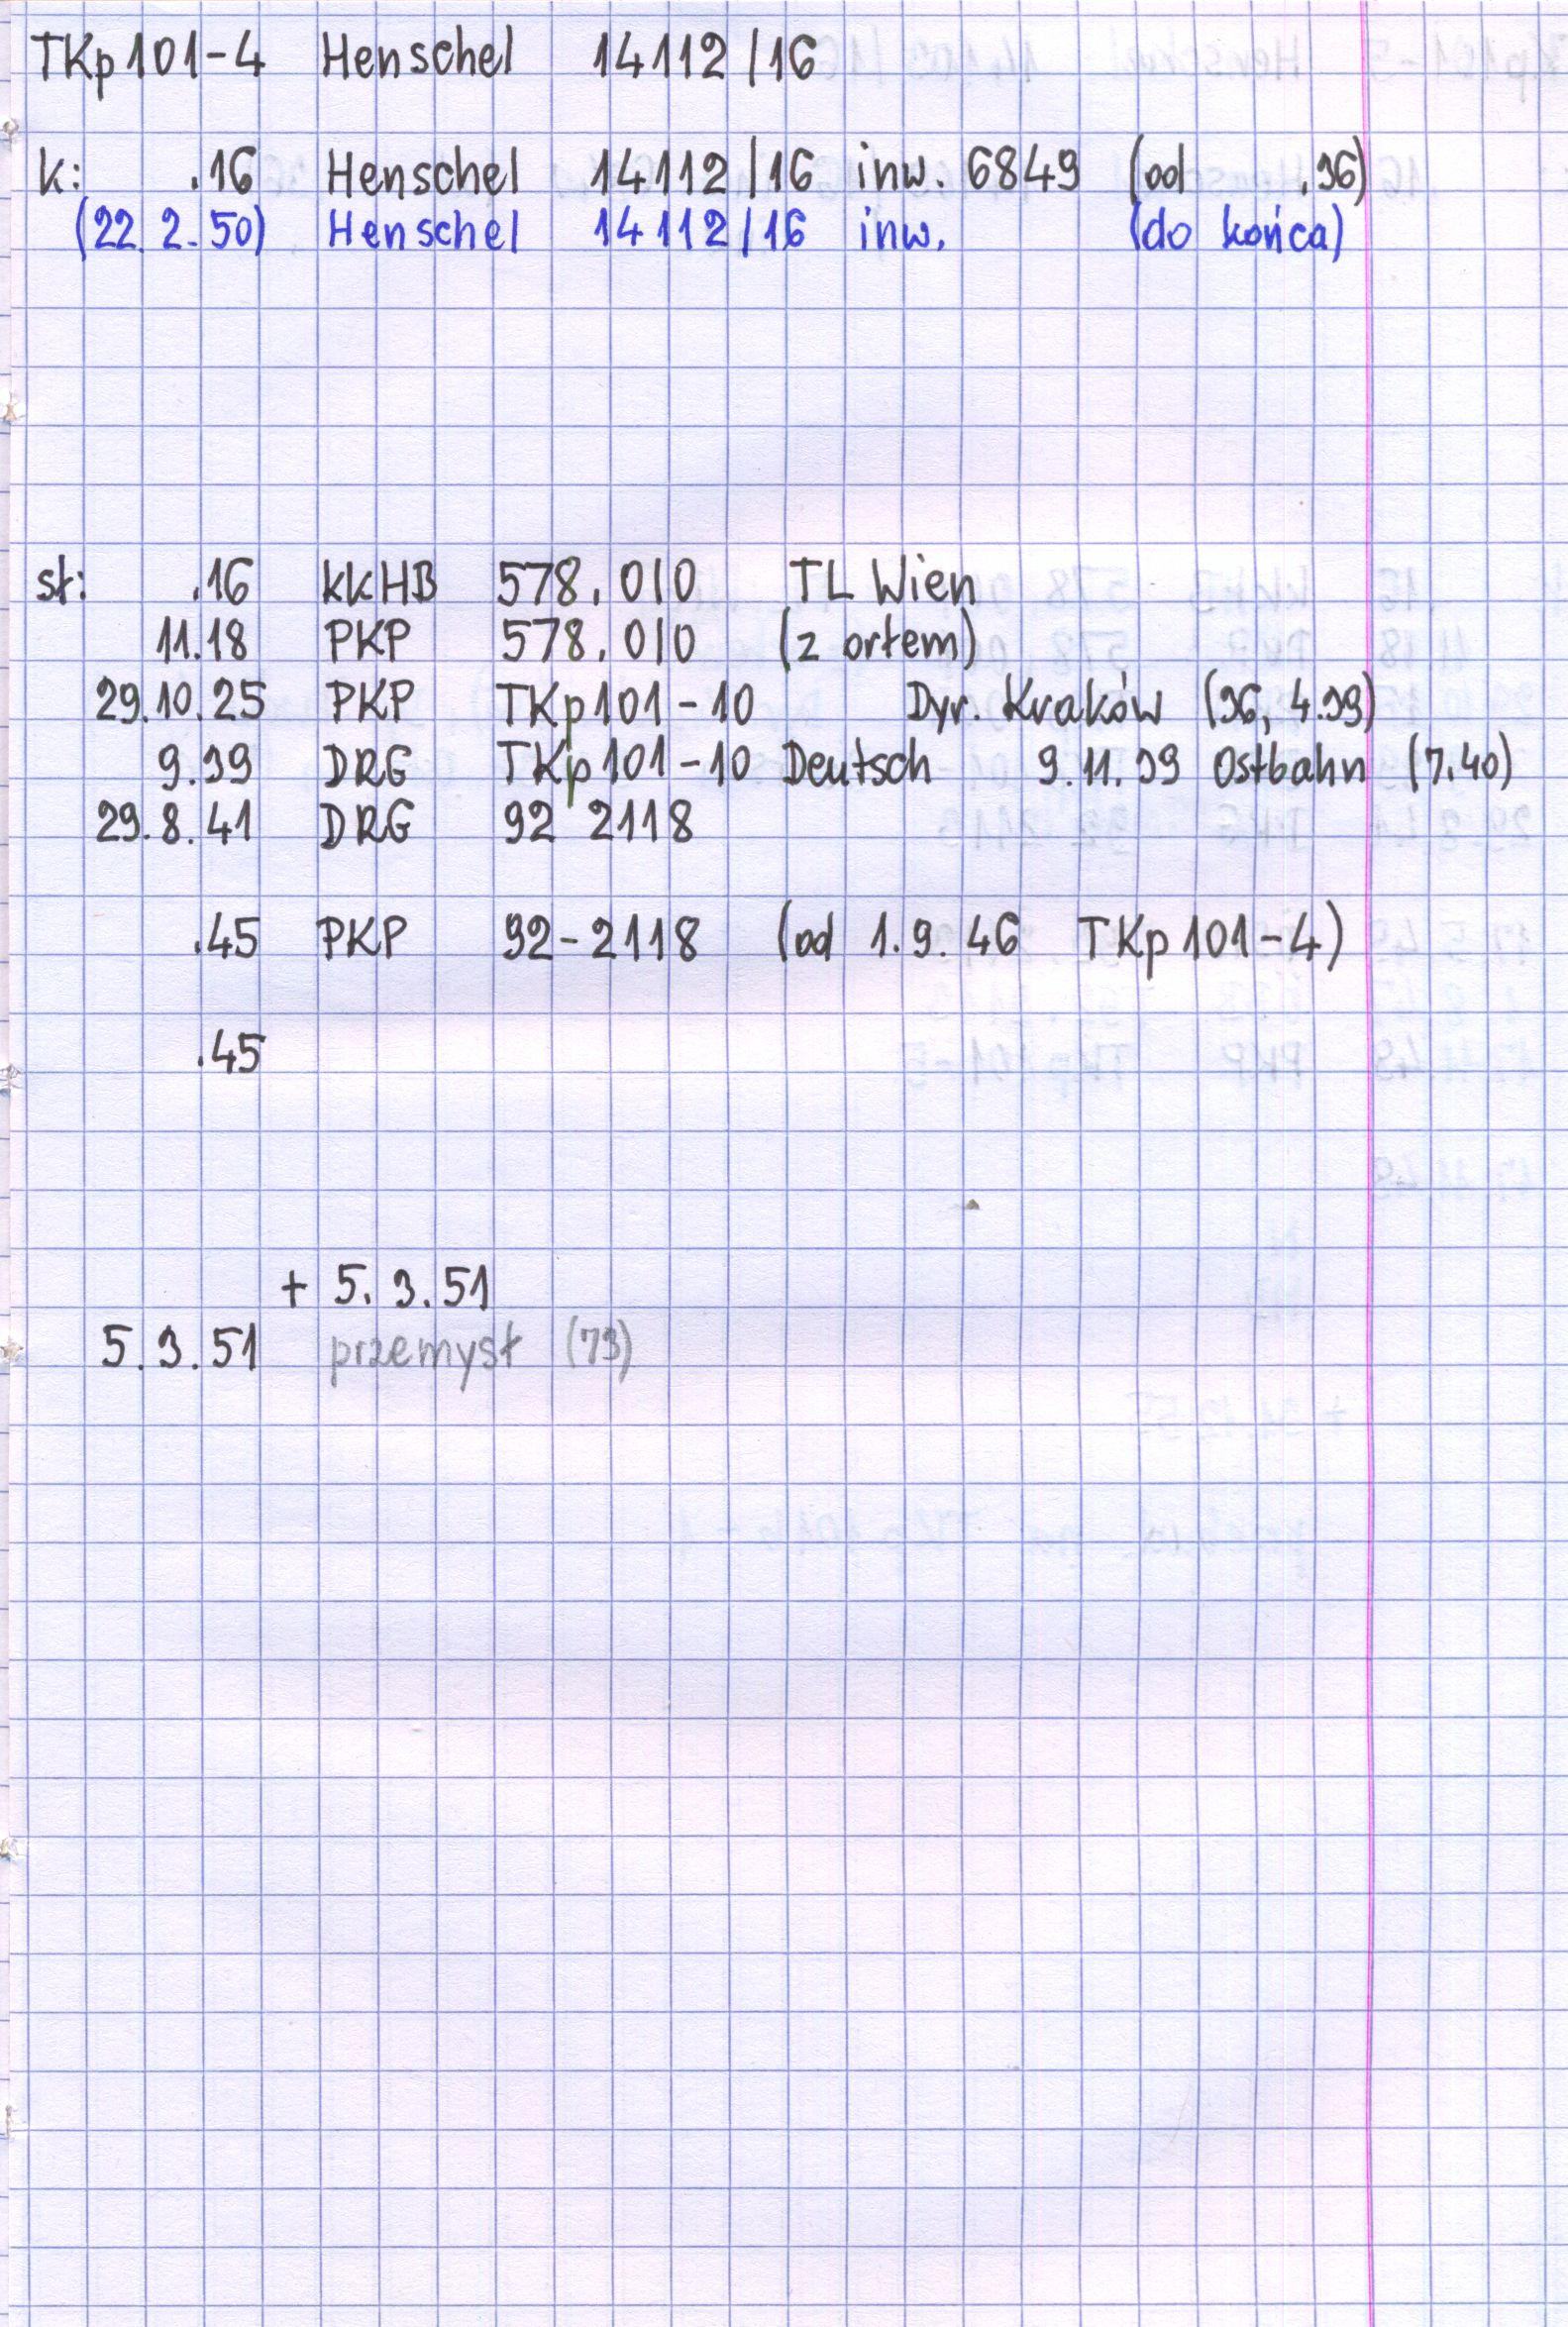 TKp101-4 Henschel 14112/16
k: .16 Henschel 14112/16 inw. 6849 (od .36)
(22. 2. 50) Henschel 14112/16 inw. (do końca)
st: .16 kkHB 578.010 TL Wien
11.18 PKP 578.010 (z ortem)
29.10.25 PKP TKp101-10 Dyr. Kraków (36, 4.39)
9.39 DRG TKp101-10 Deutsch 9.11.39 Ostbahn (7.40)
29.8.41 DRG 92 2118
.45 PKP 92-2118 (od 1.9.46 TKp101-4)
.45
+ 5.3.51
5.3.51 przemysł (73)